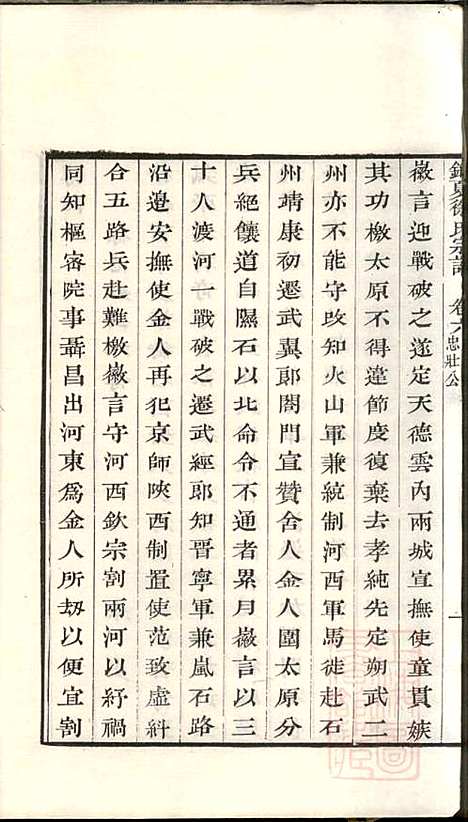 徐氏宗譜 卷六 忠壯公
徽言迎戰破之遂定天德雲內兩城宣撫使童貫嫉
其功檄太原不得違節度復棄去孝純先定朔武二
州亦不能守改知火山軍兼統制河西軍馬徙赴石
州靖康初遷武翼郎閤門宣贊舍人金人圍太原分
兵絕饟道自隰石以北命令不通者累月徽言以三
十人渡河一戰破之遷武經郎知晉寧軍兼嵐石路
沿邊安撫使金人再犯京師陝西制置使范致虛糾
合五路兵赴難檄徽言守河西欽宗割兩河以紓禍
同知樞密院事聶昌出河東為金人所劫以便宜割